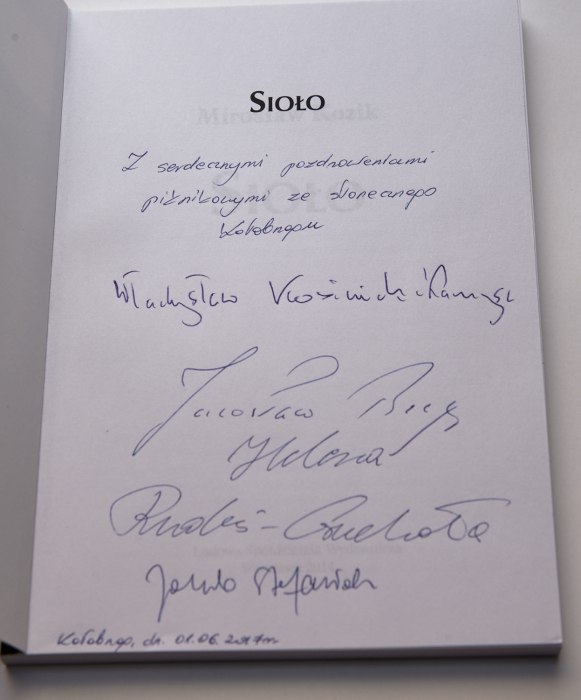 SIOŁO
Z serdecznymi pozdrowieniami
piknikowymi ze słonecznego
Kołobrzegu
Władysław Kosiniak-Kamysz
Jarosław
Helena
Rudis-Gruchała
Jakub Stefaniak
Kołobrzeg, dn. 01.06.2017 r.